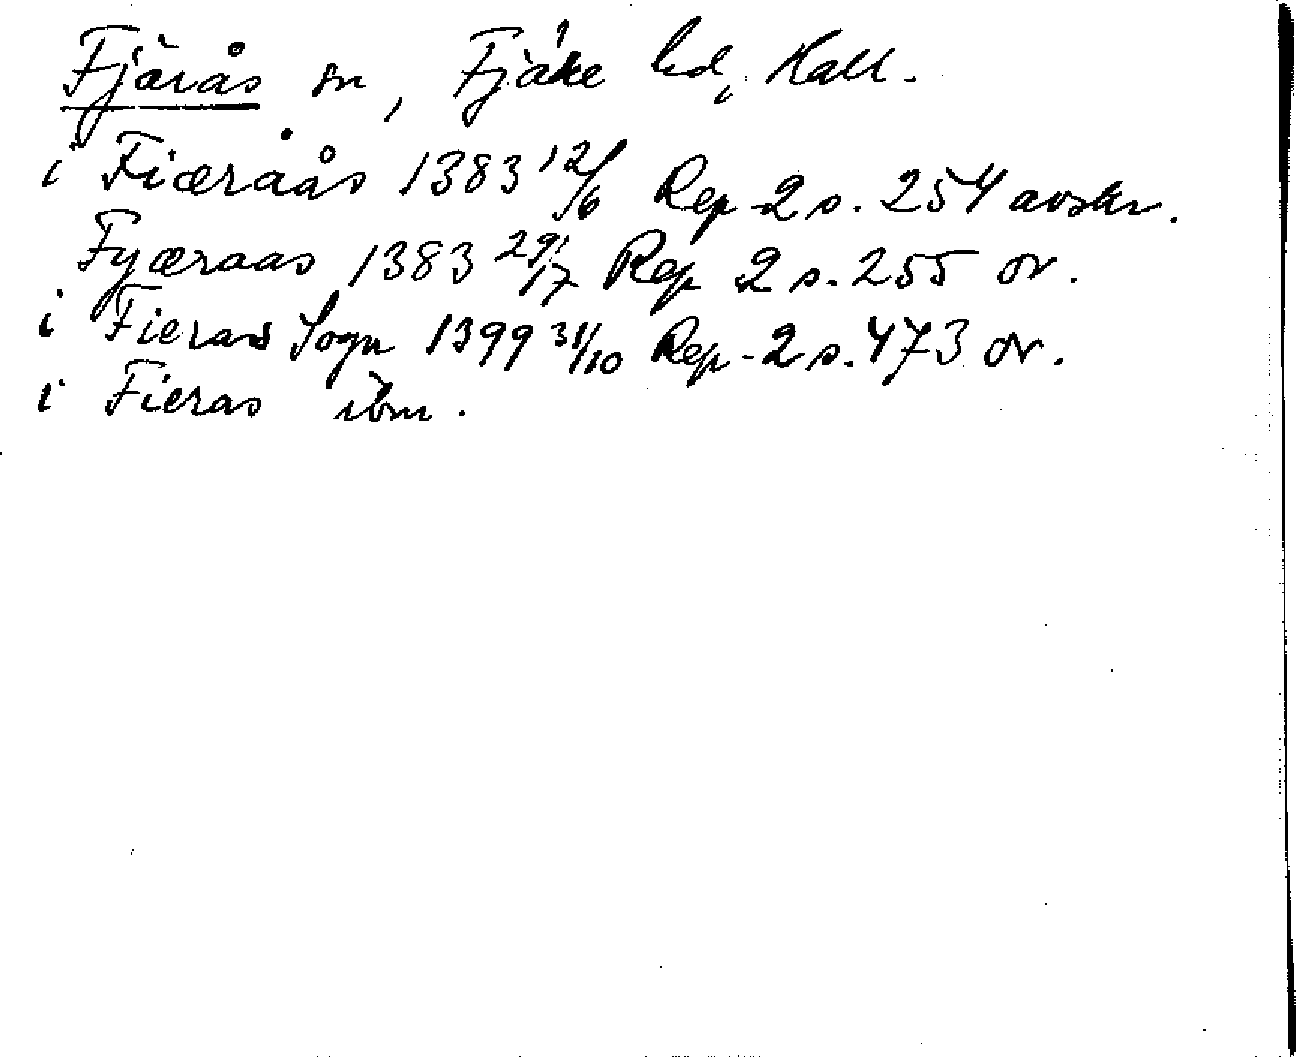 Fjärås sn, Fjäre hd, Hall.
i Fiæraås 1383 12/6 Rep 2 s. 254 avskr.
Fyæraas 1383 29/17 Rep 2 s. 255 or.
i Fieras Sogn 1399 31/10 Rep 2 s. 473 or.
i Fieras ibm.